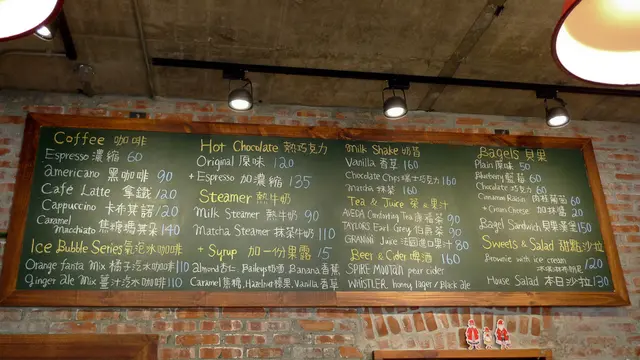 Coffee 咖啡
Espresso 濃縮 60
americano 黑咖啡 90
Café Latte 拿鐵 120
Cappuccino 卡布其諾 120
Caramel Macchiato 焦糖瑪其朵 140
Ice Bubble Series 氣泡冰咖啡
Orange fanta Mix 橘子汽水咖啡 110
Ginger ale Mix 薑汁汽水咖啡 110
Hot Chocolate 熱巧克力
Original 原味 120
+ Espresso 加濃縮 135
Steamer 熱牛奶
Milk Steamer 鮮牛奶 90
Matcha Steamer 抹茶牛奶 110
+ Syrup 加一份果露 15
almond 杏仁 Baileys 奶酒 Banana 香蕉
Caramel 焦糖, Hazelnut 榛果, Vanilla 香草
Milk Shake 奶昔
Vanilla 香草 160
Chocolate Chips 瑞士巧克力 160
Matcha 抹茶 160
Tea & Juice 茶&果汁
AVEDA Comforting Tea 康福茶 90
TAYLORS Earl Grey 伯爵茶 90
GRANINI Juice 法國進口果汁 80
Beer & Cider 啤酒 160
SPIRE MOUNTAIN pear cider
WHISTLER Honey lager / Black ale
Bagels 貝果
Plain 原味 50
Blueberry 藍莓 60
Chocolate 巧克力 60
Cinnamon Raisin 肉桂葡萄 60
+ Cream Cheese 加抹醬 20
Bagel Sandwich 貝果漢堡 150
Sweets & Salad 甜點沙拉
Brownie with ice cream
120
House Salad 本日沙拉 130